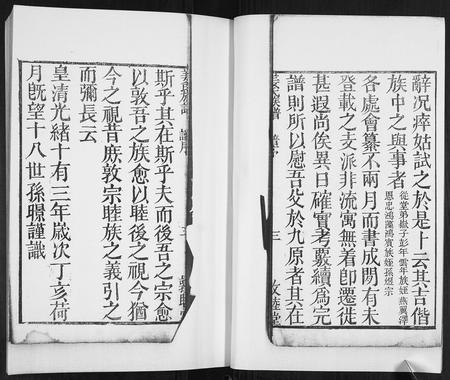 辭况瘁姑試之於是卜云其吉偕
族中之與事者從堂弟嶽子彭年雲年族姪燕翼澤
恩忠鴻藻鴻賓族姪孫煜宗
各處會纂不兩月而書成閱有未
登載之支派非流寓無着卽遷徙
甚遐尚俟異日確實考覈續爲完
譜則所以慰吾父於九原者其在
三
斯乎其在斯乎夫而後吾之宗愈
以敦吾之族愈以睦後之視今猶
今之視昔庶敦宗睦族之義引之
而彌長云
皇清光緒十有三年歲次丁亥荷
月旣望十八世孫璟謹識